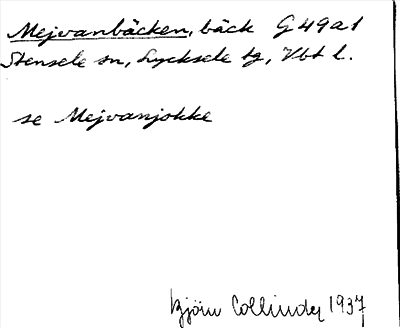 Mejvanbäcken, bäck G 49 a 1
Stensele sn, Lycksele tg, Vbt l.
se Mejvanjokke
Björn Collinder 1937